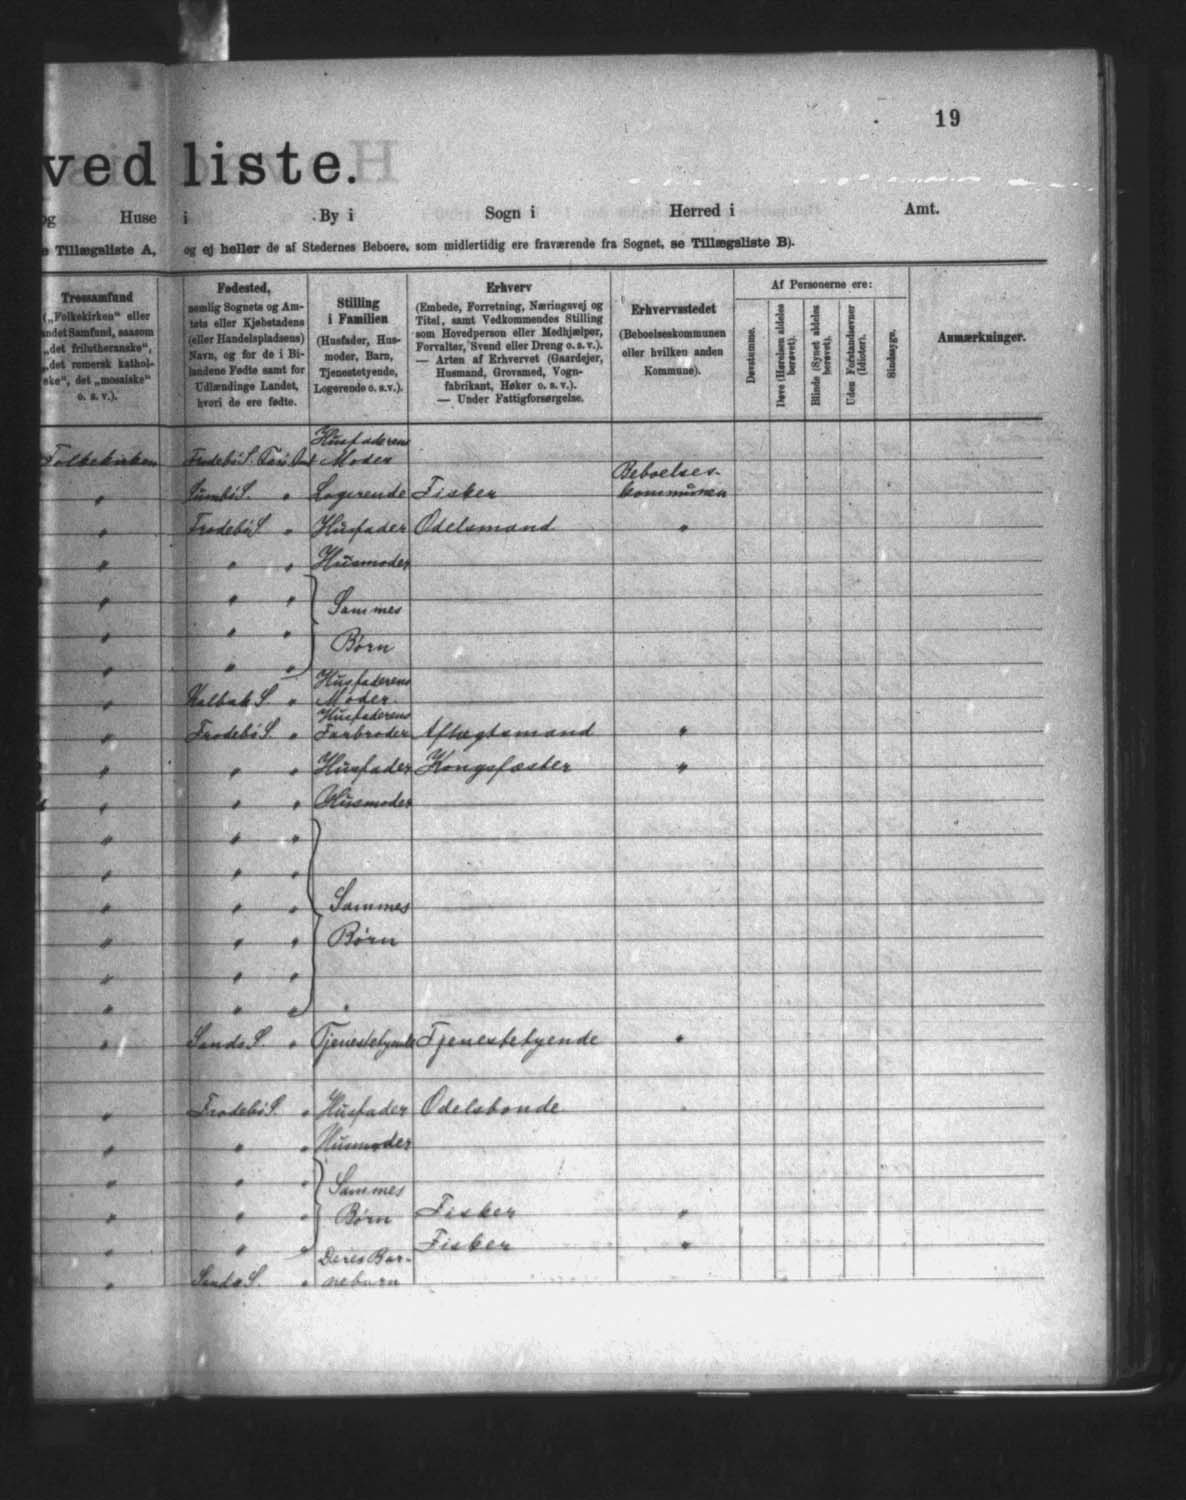 19
ved liste.
og Huse i By i Sogn i Herred i Amt.
e Tillægsliste A, og ej heller de af Stedernes Beboere, som midlertidig ere fraværende fra Sognet, se Tillægsliste B).
Trossamfund
(„Folkekirken“ eller
andet Samfund, saasom
„det frilutheranske“,
„det romersk kathol-
ske“, det „mosaiske“
o. s. v.).
Fødested,
nemlig Sognets og Am-
tets eller Kjøbstadens
(eller Handelspladsens)
Navn, og for de i Bi-
landene Fødte samt for
Udlændinge Landet,
hvori de ere fødte.
Stilling
i Familien
(Husfader, Hus-
moder, Barn,
Tjenestetyende,
Logerende o. s. v.).
Erhverv
(Embede, Forretning, Næringsvej og
Titel, samt Vedkommendes Stilling
som Hovedperson eller Medhjælper,
Forvalter, Svend eller Dreng o. s. v.).
— Arten af Erhvervet (Gaardejer,
Husmand, Grovsmed, Vogn-
fabrikant, Høker o. s. v.).
— Under Fattigforsørgelse.
Erhvervsstedet
(Beboelseskommunen
eller hvilken anden
Kommune).
Af Personerne ere:
Døvstumme.
Døve (Hørelsen aldeles
berøvet).
Blinde (Synet aldeles
berøvet).
Uden Forstandsevner
(Idioter).
Sindssyge.
Anmærkninger.
Husfaderens
Folkekirken Frodebø S. Moder
Beboelses-
" Sumbø S. " Logerende Fisker kommunen
" Frodebø S " Husfader Odelsmand "
" " " Husmoder
" " " Sammes
" " " Børn
" " "
Husfaderens
" Kalbak S. " Moder.
Husfaderens
" Frodebø S. " Farbroder Aftægtsmand "
" " " Husfader Kongsfæster "
" " " Husmoder
" " "
" " "
" " " Sammes
" " " Børn
" " "
" " "
" Sands S. " Tjenestetyende Tjenestetyende "
" Frodebø S. " Husfader Odelsbonde
" " " Husmoder
" " " Sammes
" " " Børn Fisker "
" " " Fisker "
Deres Bar-
" Sands S. " nebarn